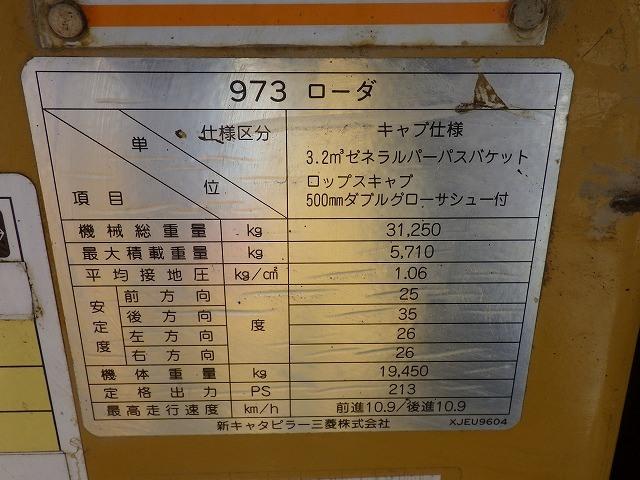 973 ローダ
仕様区分
単位
項目
キャブ仕様
3.2㎥ゼネラルパーパスバケット
ロップスキャブ
500mmダブルグローサシュー付
機械総重量 kg 31,250
最大積載重量 kg 5,710
平均接地圧 kg/c㎡ 1.06
安定度 度
前方向 25
後方向 35
左方向 26
右方向 26
機体重量 kg 19,450
定格出力 PS 213
最高走行速度 km/h 前進10.9/後進10.9
新キャタピラー三菱株式会社 XJEU9604